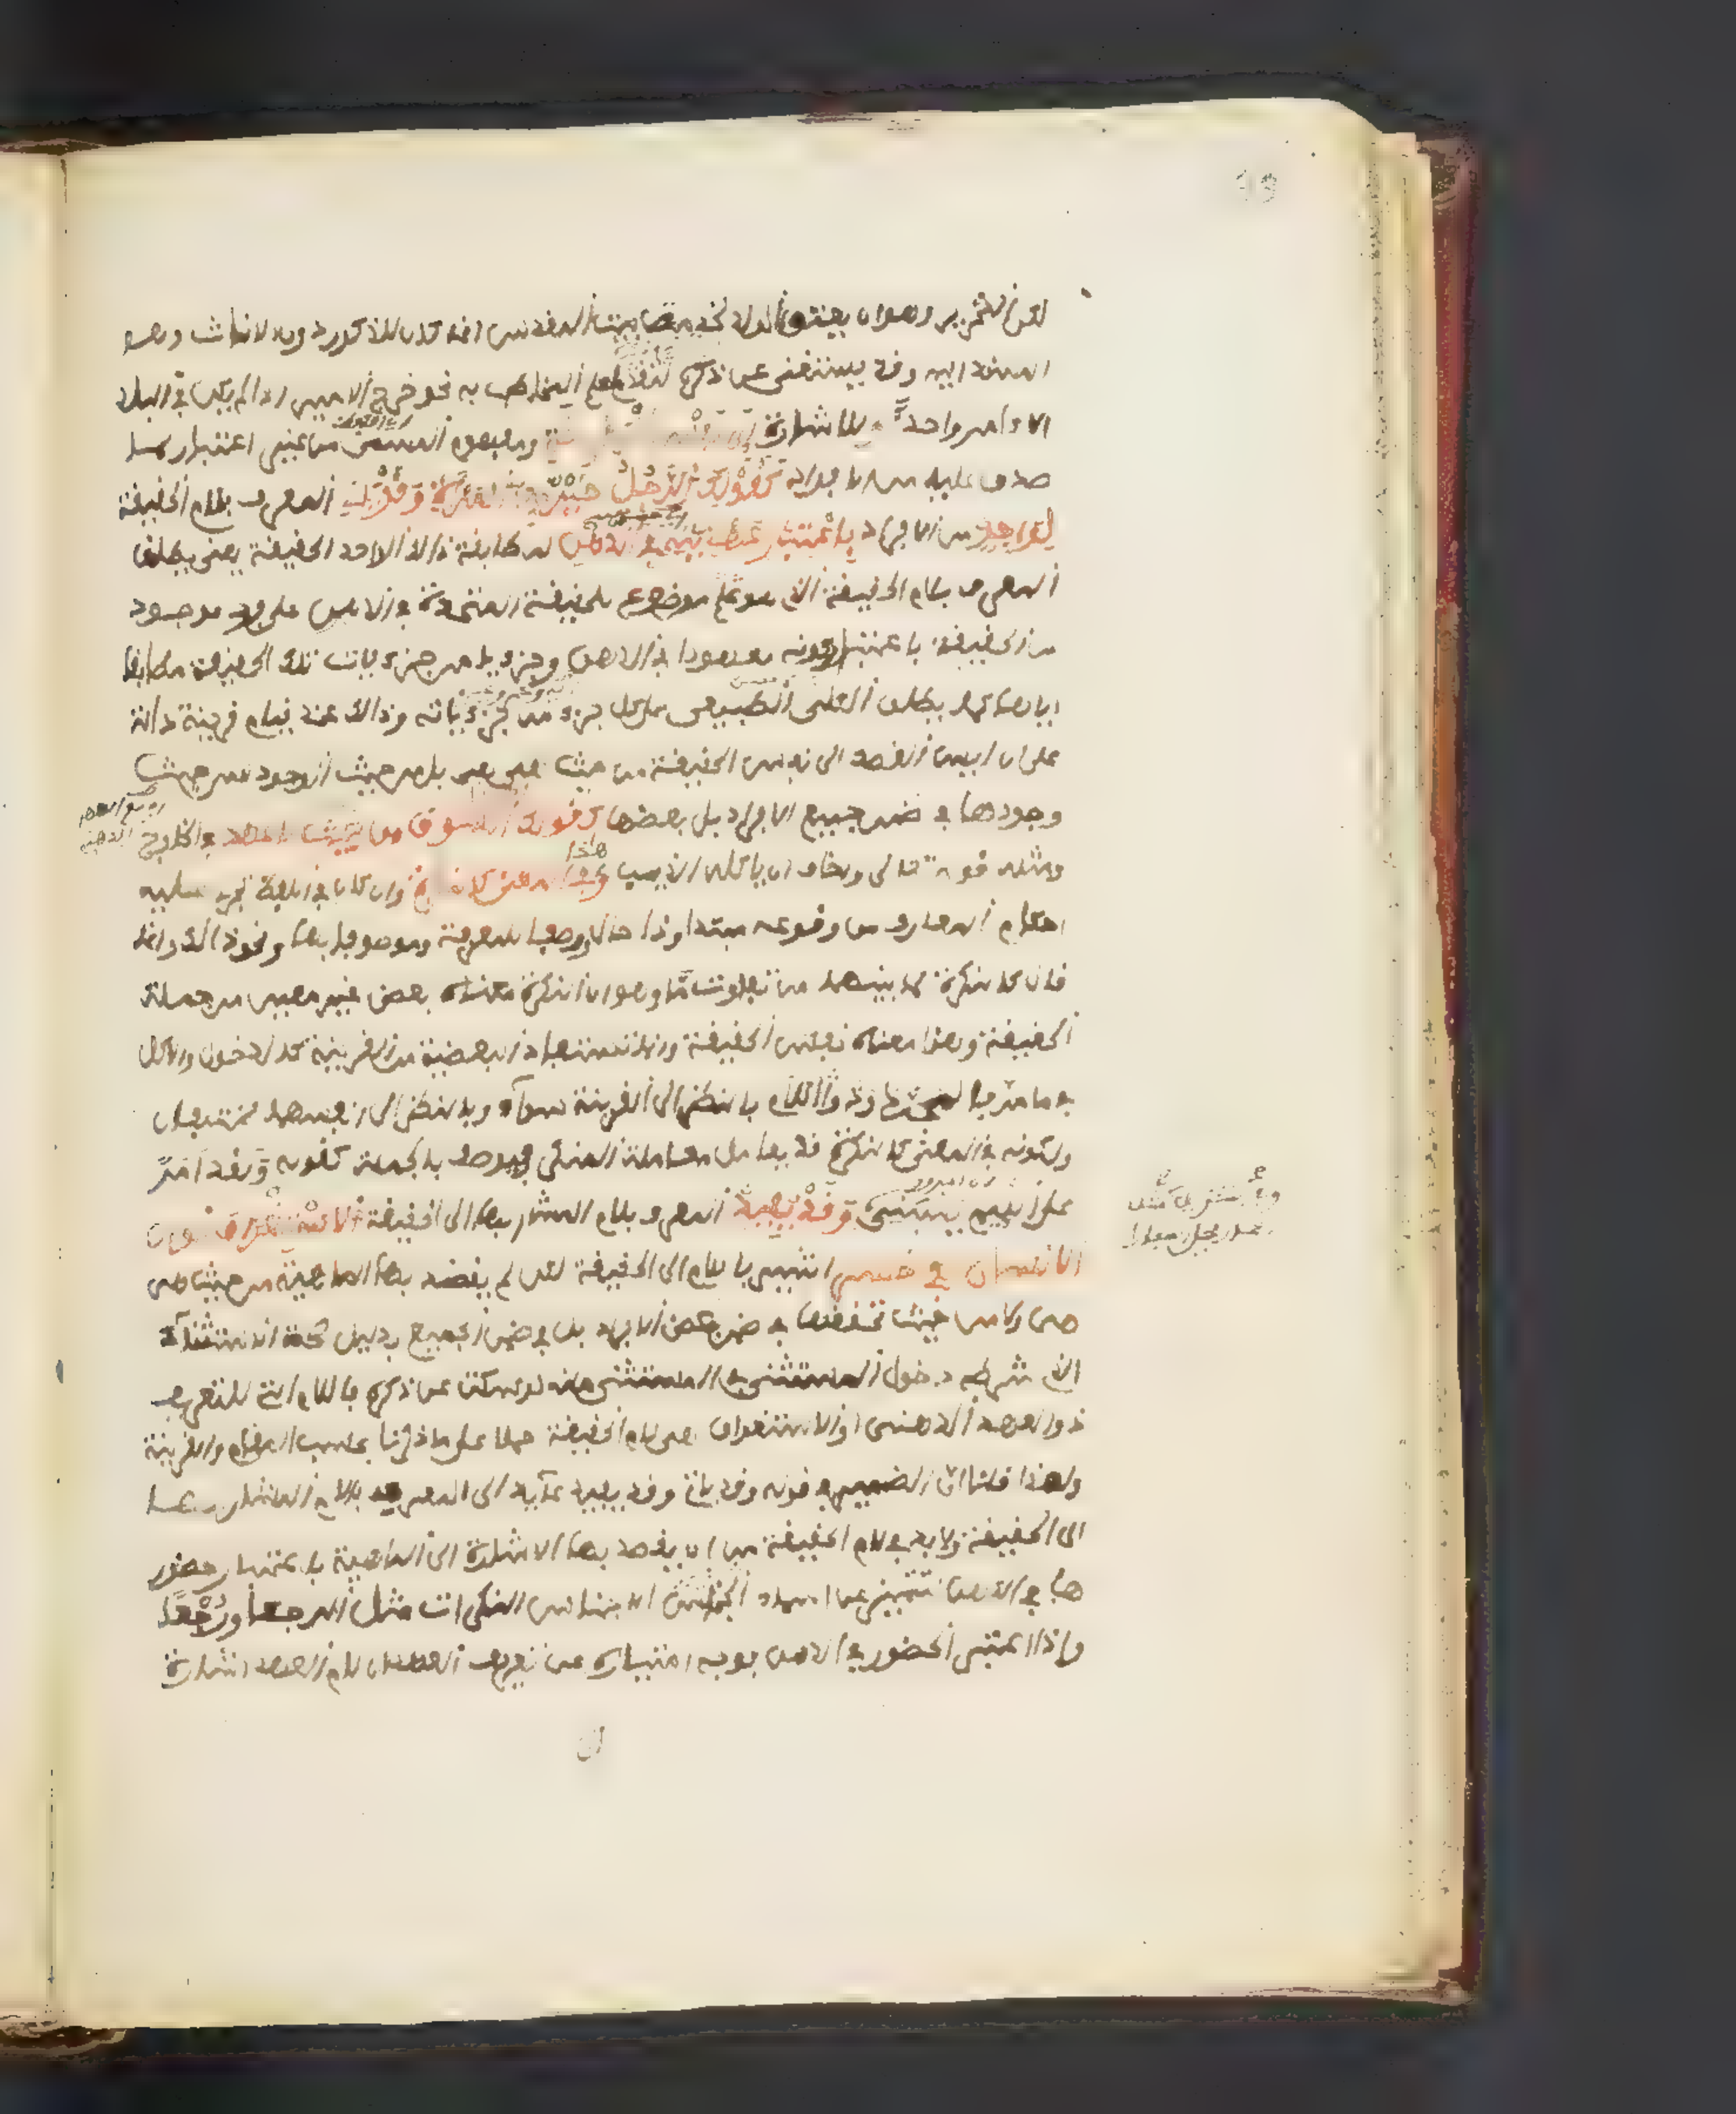 لكن التحرير وهو ان يعتق الولد لخدمة بيت المقدس انما كان للذكور دون الاناث وهو
المسند اليه وقد يستغنى عن ذكره لتقدم علم المخاطب به نحو خرج الامير اذا لم يكن في البلد
الا امير واحد او للاشارة الى نفس الحقيقة ومفهوم المسمى من غير اعتبار لما
صدق عليه من الافراد كقولك الرجل خير من المراة وقد ياتي المعرف بلام الحقيقة
لواحد من الافراد باعتبار عهديته في الذهن لمطابقة ذالك الواحد الحقيقة يعني يطلق
المعرف بلام الحقيقة الذي هو موضوع للحقيقة المتحدة في الذهن على فرد موجود
من الحقيقة باعتبار كونه معهودا في الذهن وجزءيا من جزءيات تلك الحقيقة مطابقا
اياها كما يطلق الكلي الطبيعي على كل جزء من جزءياته وذالك عند قيام قرينة دالة
على ان ليس القصد الى نفس الحقيقة من حيث هي هي بل من حيث الوجود لا من حيث
وجودها في ضمن جميع الافراد بل بعضها كقولك ادخل السوق حيث لا عهد في الخارج
ومثله قوله تعالى واخاف ان ياكله الذيب وهذا في المعنى كالنكرة وان كان في اللفظ يجري عليه
احكام المعارف من وقوعه مبتدا وذا حال ووصفا للمعرفة وموصوفا بها ونحو ذالك وانما
قال كالنكرة لما بينهما من تفاوت ما وهو ان النكرة معناه بعض غير معين من جملة
الحقيقة وهذا معناه نفس الحقيقة وانما تستفاد البعضية من القرينة كالدخول والاكل
فيما مر فالمجرد وذو اللام بالنظر الى القرينة سواء وبالنظر الى انفسهما مختلفان
ولكونه في المعنى كالنكرة قد يعامل معاملة النكرة فيوصف بالجملة كقوله ولقد امر
على اللئيم يسبني وقد يفيد المعرف باللام المشار بها الى الحقيقة الاستغراق نحو ان
الانسان لفي خسر اشير باللام الى الحقيقة لكن لم يقصد بها الماهية من حيث هي
هي ولا من حيث تحققها في ضمن بعض الافراد بل في ضمن الجميع بدليل صحة الاستثناء
الذي شرطه دخول المستثنى في المستثنى منه لو سكت عن ذكره فاللام التي للتعريف
ذو العهد الذهني او الاستغراق هي لام الحقيقة حملا على ما ذكرنا بحسب المقام والقرينة
ولهذا قلنا ان الضمير في قوله وقد ياتي وقد يفيد عائد الى المعرف باللام المشار بها
الى الحقيقة ولا بد في لام الحقيقة من ان يقصد بها الاشارة الى الماهية باعتبار حضور
ها في الذهن لتتميز عن اسماء الاجناس النكرات مثل الرجعى ورجعى
واذا اعتبر الحضور في الذهن فوجه امتيازه عن تعريف العهد ان لام العهد اشارة